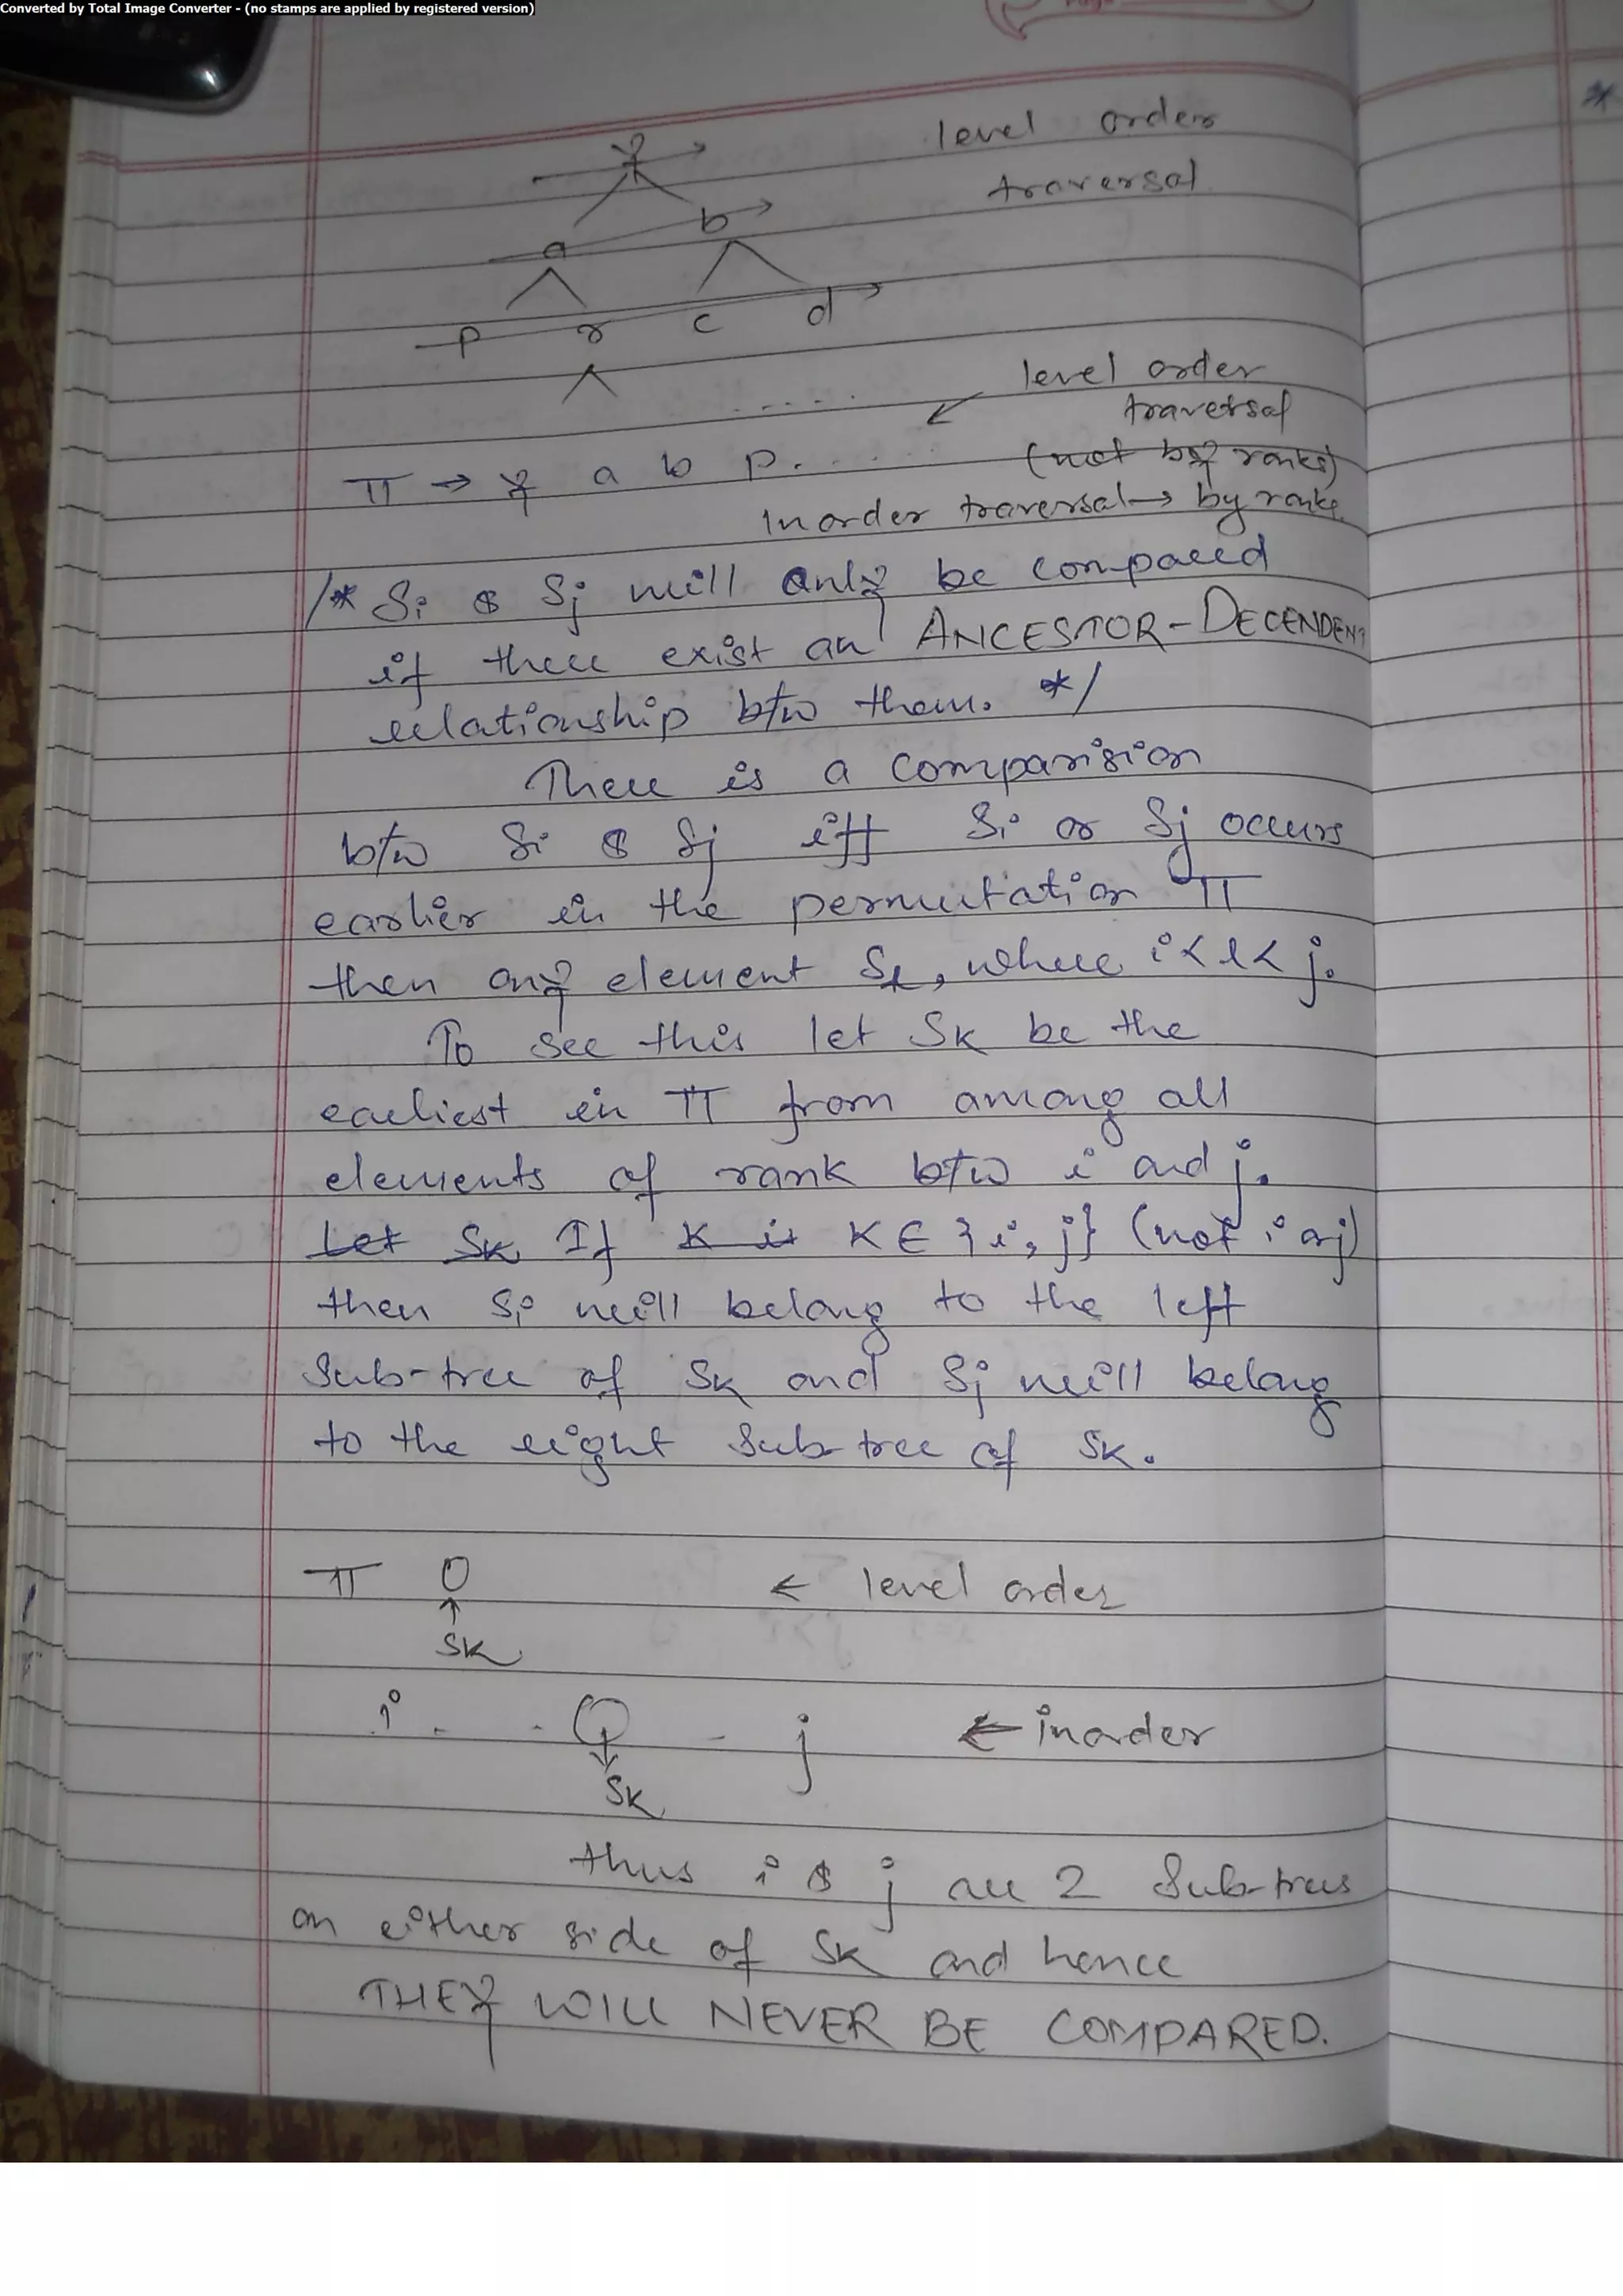 Converted by Total Image Converter - (no stamps are applied by registered version)
level order
traversal
y
a b
p r c d
level order
traversal
π → y a b p. . . . . . (not by ranks)
Inorder traversal → by ranks
/* Si & Sj will only be compaed
if there exist an ANCESTOR-DECENDENT
relationship b/w them. */
There is a comparision
b/w Si & Sj iff Si or Sj occurs
earlier in the permutation π
then any element Sl, where i<l<j.
To see this let SK be the
earliest in π from among all
elements of rank b/w i and j.
Let SK If K is K ∈ {i, j} (not i or j)
then Si will belong to the left
Sub-tree of SK and Sj will belong
to the right Sub tree of SK.
π O ← level order
↑
SK
i . . O - j ← inorder
↓
SK
thus i & j are 2 Sub-trees
on either side of SK and hence
THEY WILL NEVER BE COMPARED.